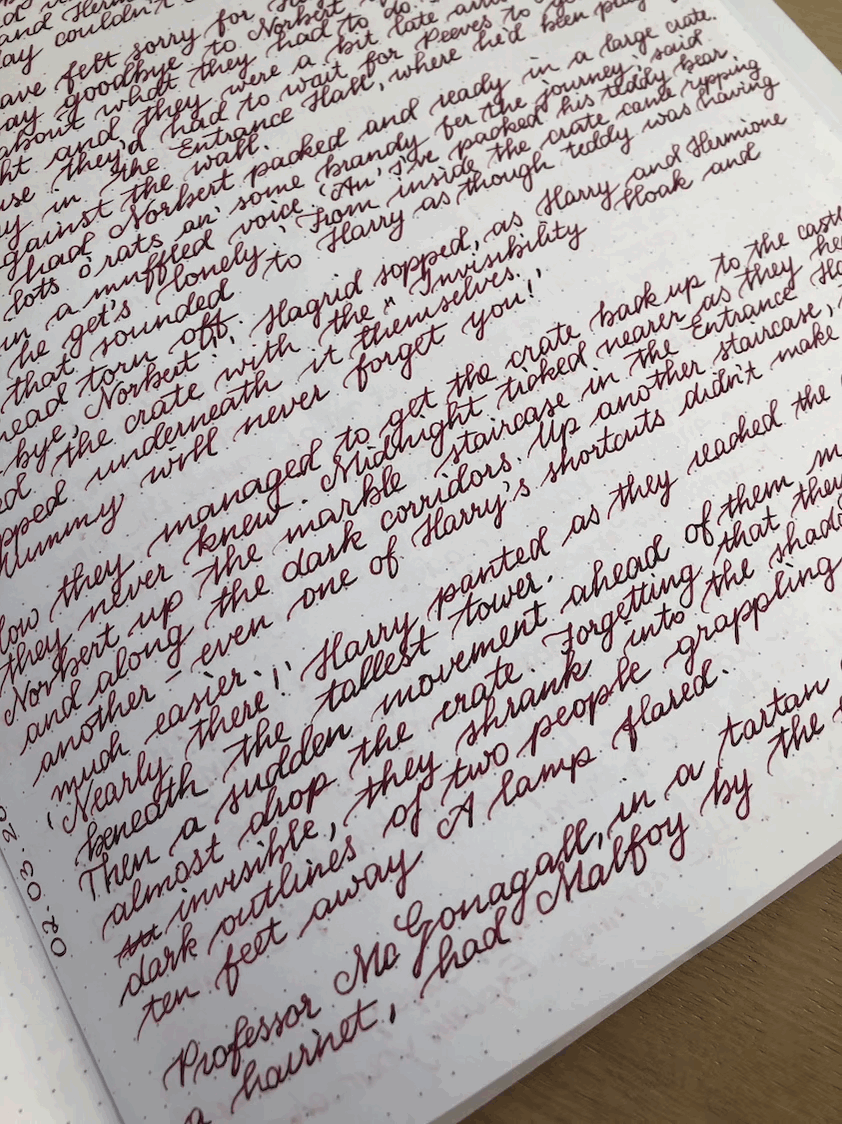 and Herm
ay couldn't
ave felt sorry for
ay goodbye to Norbert
about what they had to do.
ht and they were a bit late an
use they'd had to wait for Peeves to
y in the Entrance Hall, where he'd been play
gainst the wall.
had Norbert packed and ready in a large crate.
lots o'rats an' some brandy fer the journey,' said
in a muffled voice. 'An' I've packed his teddy bear
he get's lonely.' From inside the crate came ripping
that sounded to Harry as though teddy was having
head torn off.
-bye, Norbert!', Hagrid sopped, as Harry and Hermione
ed the crate with the Invisibility Cloak and
pped underneath it themselves.
Mummy will never forget you!'
low they managed to get the crate back up to the castl
they never knew. Midnight ticked nearer as they he
Norbert up the marble staircase in the Entrance Ha
and along the dark corridors. Up another staircase,
another - even one of Harry's shortcuts didn't make
much easier.
'Nearly there!' Harry panted as they reached the
beneath the tallest tower.
Then a sudden movement ahead of them m
almost drop the crate. Forgetting that the
invisible, they shrank into the shado
dark outlines of two people grappling
ten feet away. A lamp flared.
Professor McGonagall, in a tartan
a hairnet, had Malfoy by the
02.03.20